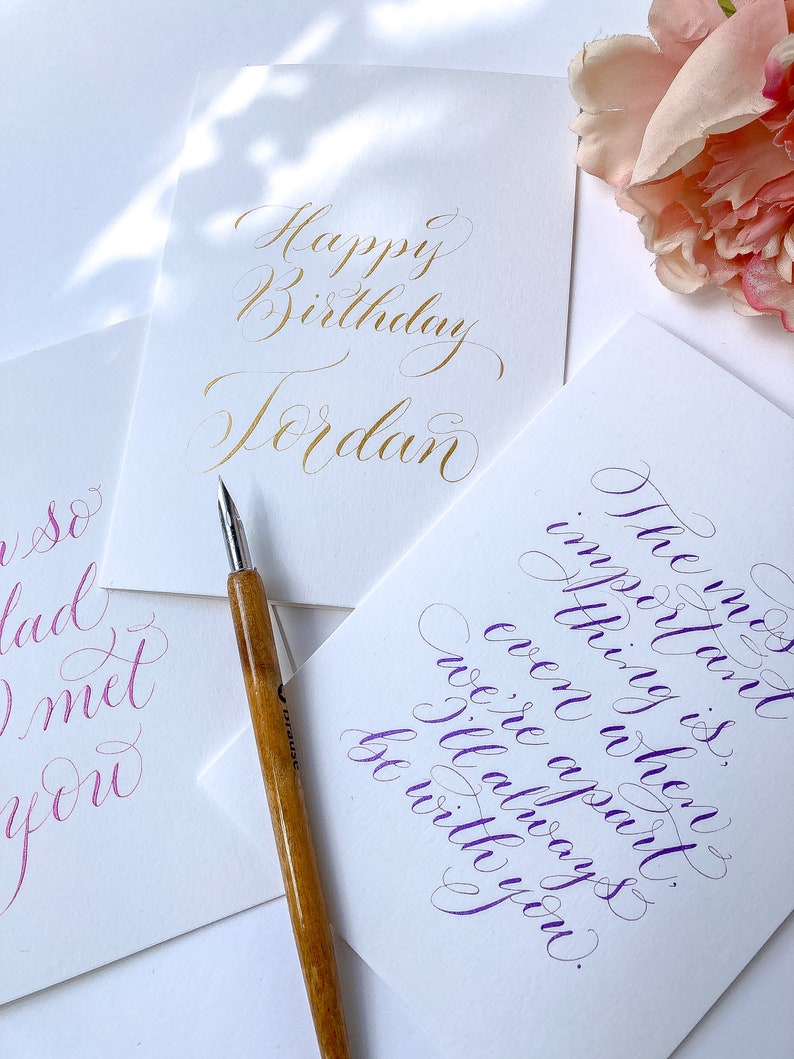 Happy
Birthday
Jordan
so
met
you
The most
important
thing is,
even when
we're apart,
I'll always
be with you.
brause